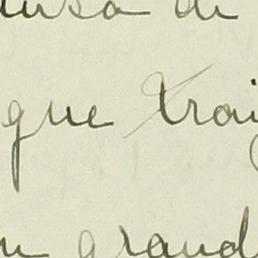 ausa di
que trai
un grand